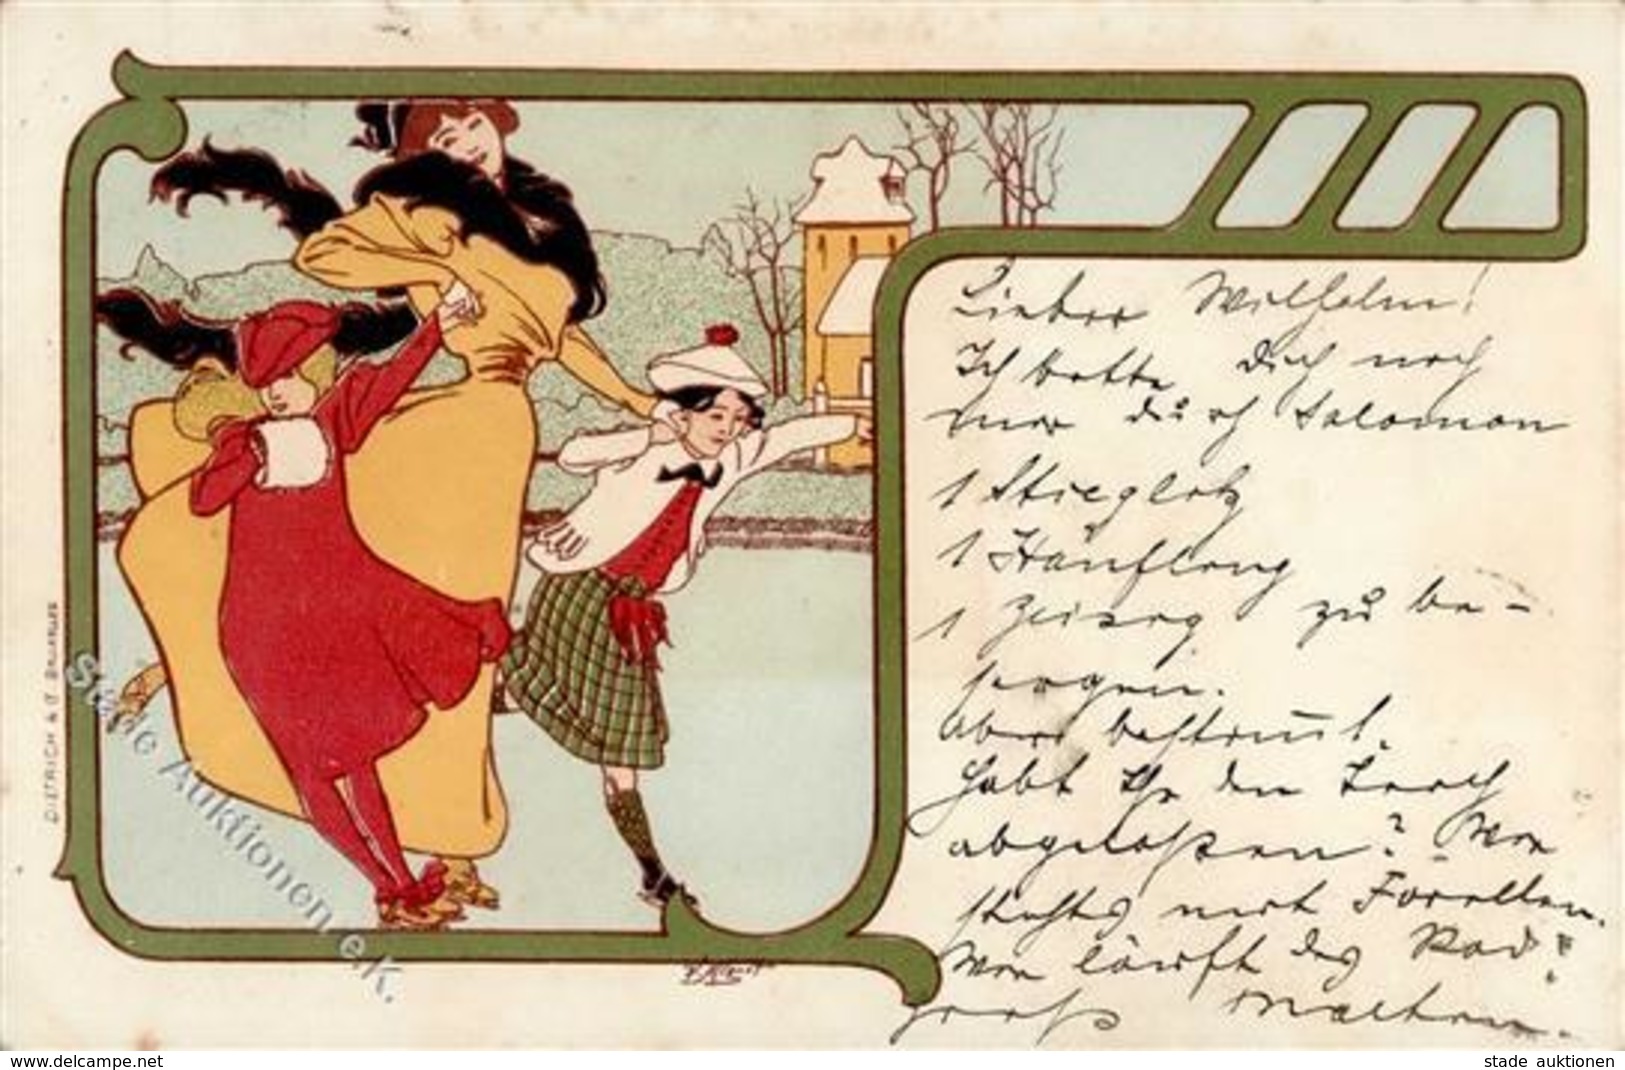 Lieber Wilhelm!
Ich bitte Dich noch
mir durch Salomon
1 Stieglitz
1 Hänfling
1 Zeisig zu be-
sorgen.
Aber bestimmt.
Habt Ihr den Teich
abgelassen? Wie
stehts mit Forellen.
Wie läuft das Rad?
Gruß
DIETRICH & Cie BRUXELLES
Stade Auktionen e.K.
www.delcampe.net
stade auktionen